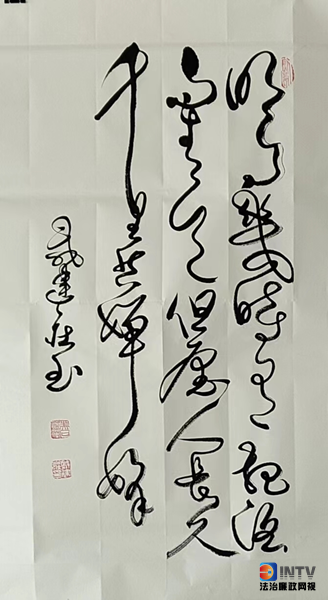 明月幾時有把酒
問青天但愿人長久
千里共嬋娟
INTV
法治廉政网视